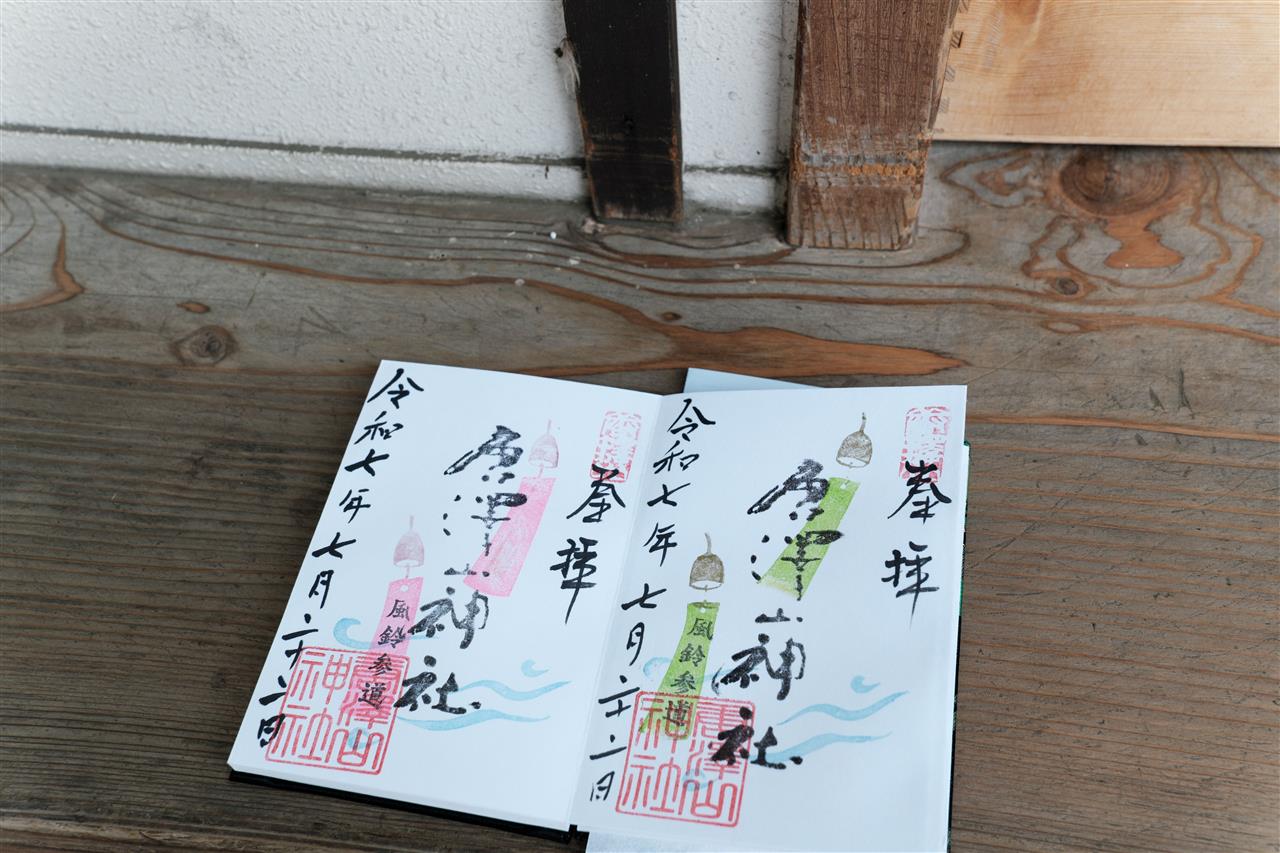 奉拝
唐澤山神社
風鈴参道
唐澤山
神社
令和七年七月二十二日
奉拝
唐澤山神社
風鈴参道
唐澤山
神社
令和七年七月二十二日